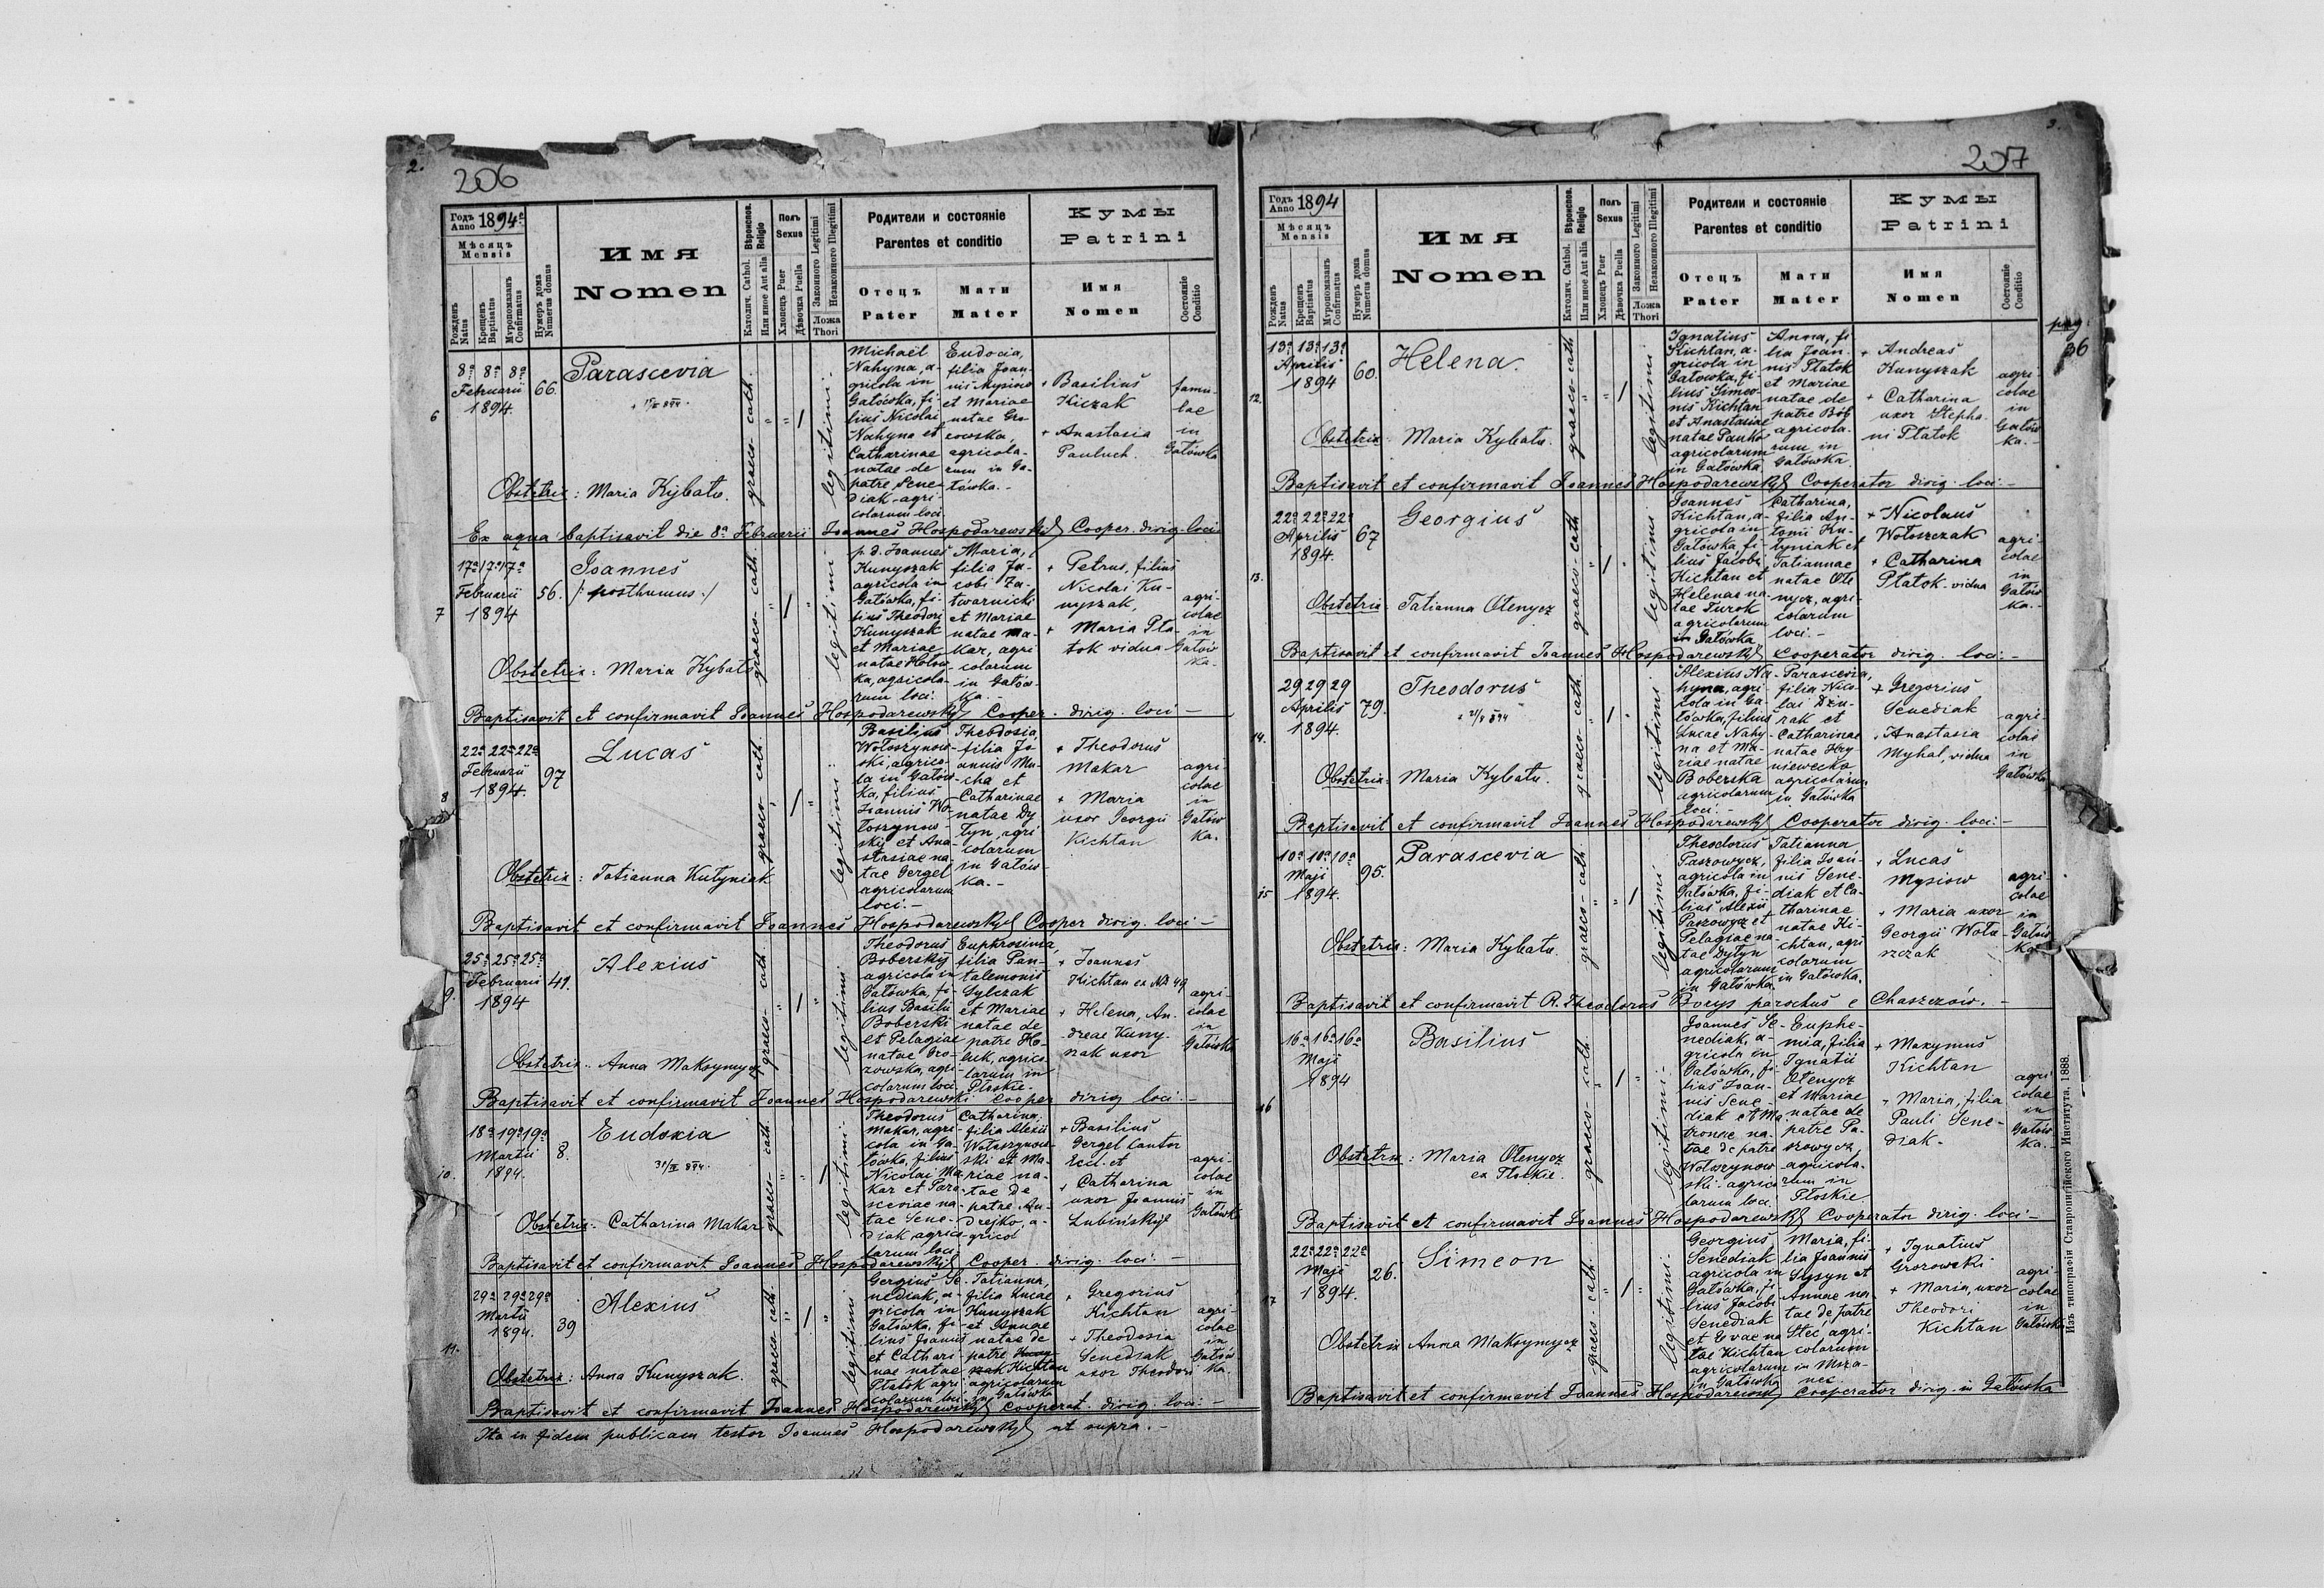 2.
206
Годъ Anno 1894
Мѣсяцъ Mensis
Рожденъ Natus
Крещенъ Baptisatus
Мѵропомазанъ Confirmatus
Нумеръ дома Numerus domus
Имя
Nomen
Вѣроиспов. Religio
Католич. Cathol.
Или иное Aut alia
Полъ Sexus
Хлопецъ Puer
Дѣвочка Puella
Законного Legitimi
Незаконного Illegitimi
Ложа Thori
Родители и состояніе
Parentes et conditio
Отецъ
Pater
Мати
Mater
Кумы
Patrini
Имя
Nomen
Состояніе Conditio
6
8ª 8ª 8ª
Februarii
1894.
66.
Parascevia
graeco-cath.
legitimi.
Michaël
Nahyna, a-
gricola in
Gatówka, fi-
lius Nicolai
Nahyna et
Catharinae
natae de
patre Sene-
diak-agri
colarum loci
Eudocia,
filia Joan-
nis Mysiow
et Mariae
natae Gro
zowska,
agricola-
rum in Ga-
tówka.-
+ Basilius
Kiczak
+ Anastasia
Pauluch.
famu-
lae
in
Gatówka
Obstetrix: Maria Kybatu.
Ex aqua baptisavit die 8ª Februarii Joannes Hospodarewskyj Cooper. dirig. loci
7
17ª 17ª 17ª
Februarii
1894
56.
Joannes
/: posthumus :/
graeco-cath.
legitimi.
p. d. Joannes
Kunyszak
agricola in
Gatówka, fi-
lius Theodori
Kunyszak
et Mariae
natae Hotow-
ka, agricola-
rum loci.
Maria,
filia Ja-
cobi Za-
twarnicki
et Mariae
natae Ma-
kar, agri
colarum
in Gatów-
ka.-
+ Petrus, filius
Nicolai Ku-
nyszak,
+ Maria Pta-
tok vidua
agri-
colae
in
Gatów
ka.
Obstetrix: Maria Kybatu
Baptisavit et confirmavit Joannes Hospodarewskyj Cooper. dirig. loci -
8
22ª 22ª 22ª
Februarii
1894.
97
Lucas
graeco-cath.
legitimi.
Basilius
Wotoszynow-
ski, agrico-
la in Gatów-
ka, filius
Joannis Wo-
toszynow-
sky et Ana-
stasiae na-
tae Gergel
agricolarum
loci.-
Theodosia,
filia Jo
annis Mu-
cha et
Catharinae
natae Dy
tyn, agri
colarum
in Gatów-
ka.-
+ Theodorus
Makar
+ Maria
uxor Georgii
Kichtan
agri-
colae
in
Gatów
ka.
Obstetrix: Tatianna Kutyniak
Baptisavit et confirmavit Joannes Hospodarewskyj Cooper dirig. loci -
9.
25ª 25ª 25ª
Februarii
1894
41.
Alexius
graeco-cath.
legitimi.
Theodorus
Boberskÿ
agricola in
Gatówka, fi-
lius Basilii
Boberski
et Pelagiae
natae Gro-
zowska, agri-
colarum loci.
Euphrosima,
filia Pan-
talemonis
Sylczak
et Mariae
natae de
patre Ho-
luk, agrico-
larum in
Ptoskie-
+ Joannes
Kichtan ex № 49
+ Helena, An-
dreae Kuny-
szak uxor
agri-
colae
in
Gatówka
Obstetrix: Anna Maksymycz
Baptisavit et confirmavit Joannes Hospodarewski Cooper dirig loci -
10.
18ª 19ª 19ª
Martii
1894.
8.
Eudoxia
31/III 894.
graeco-cath.
legitimi.
Theodorus
Makar, agri-
cola in Ga-
tówka, filius
Nicolai Ma
kar et Para-
sceviae na-
tae Sene-
diak agrico
larum loci
Catharina,
filia Alexii
Wotoszynow-
ski et Ma-
riae na-
tae de
patre An-
drejko, a-
gricol
+ Basilius
Gergel Cantor
Eccl. et
+ Catharina
uxor Joannis
Lubińskyj
agri-
colae
in
Gatówka
Obstetrix: Catharina Makar
Baptisavit et confirmavit Joannes Hospodarewskyj Cooper. dirig. loci. -
11.
29ª 29ª 29ª
Martii
1894.
39
Alexius
graeco-cath.
legitimi
Gergius Se-
nediak, a-
gricola in
Gatówka, fi-
lius Joannis
et Cathari-
nae natae
Ptatok agri-
colarum loci
Tatianna,
filia Lucae
Kunyszak
et Annae
natae de
patre
Kichtan
agricolarum
in Gatówka
+ Gregorius
Kichtan
+ Theodosia
Senediak
uxor Theodori
agri-
colae
in
Gatów
ka.
Obstetrix: Anna Kunyszak.
Baptisavit et confirmavit Joannes Hospodarewskyj Cooperat. dirig. loci: -
Ita in fidem publicam testor Joannes Hospodarewskyj ut supra. -
3.
207
pag. 36
Годъ Anno 1894
Мѣсяцъ Mensis
Рожденъ Natus
Крещенъ Baptisatus
Мѵропомазанъ Confirmatus
Нумеръ дома Numerus domus
Имя
Nomen
Вѣроиспов. Religio
Католич. Cathol.
Или иное Aut alia
Полъ Sexus
Хлопецъ Puer
Дѣвочка Puella
Законного Legitimi
Незаконного Illegitimi
Ложа Thori
Родители и состояніе
Parentes et conditio
Отецъ
Pater
Мати
Mater
Кумы
Patrini
Имя
Nomen
Состояніе Conditio
12.
13ª 13ª 13ª
Aprilis
1894
60.
Helena.
graeco-cath
legitimi
Ignatius
Kichtan, a-
gricola in
Gatówka, fi-
lius Simeo-
nis Kichtan
et Anastasiae
natae Pauko
agricolarum
in Gatówka.
Anna, fi
lia Joan-
nis Ptatok
et Mariae
natae de
patre Bób
agricola-
rum in
Gatówka.
+ Andreas
Kunyszak
+ Catharina
uxor Stepha-
ni Ptatok
agri-
colae
in
Gatów
ka.-
Obstetrix: Maria Kybatu.
Baptisavit et confirmavit Joannes Hospodarewskyj Cooperator dirig. loci: -
13.
22ª 22ª 22ª
Aprilis
1894.
67
Georgius
graeco-cath
legitimi
Joannes
Kichtan, a-
gricola in
Gatówka, fi-
lius Jacobi
Kichtan et
Helenae na-
tae Turok
agricolarum
in Gatówka
Catharina,
filia An-
tonii Ku-
tyniak et
Tatiannae
natae Ote
nycz, agri-
colarum
loci.-
+ Nicolaus
Wotoszczak
+ Catharina
Ptatok. vidua
agri-
colae
in
Gatów
ka.-
Obstetrix: Tatianna Otenycz
Baptisavit et confirmavit Joannes Hospodarewskyj Cooperator dirig. loci: -
14.
29 29 29
Aprilis
1894.
79.
Theodorus
graeco-cath
legitimi
Alexius Na-
hyna, agri-
cola in Ga-
tówka, filius
Lucae Nahy-
na et Ma-
riae natae
Boberska
agricolarum
loci.-
Parascevia,
filia Nico-
lai Dziu-
rak et
Catharinae
natae Hry
niewecka
agricolarum
in Gatówka
+ Gregorius
Senediak
+ Anastasia
Myhal, vidua
agri-
colae
in
Gatówka
Obstetrix: Maria Kybatu.
Baptisavit et confirmavit Joannes Hospodarewskyj Cooperator dirig. loci: -
15
10ª 10ª 10ª
Maji
1894.
95.
Parascevia
graeco-cath
legitimi.
Theodorus
Paszowycz,
agricola in
Gatówka, fi-
lius Alexii
Paszowycz et
Pelagiae na-
tae Dytyn
agricolarum
in Gatówka.
Tatianna
filia Joan-
nis Sene-
diak et Ca-
tharinae
natae Ki-
chtan, agri
colarum
in Gatówka.
+ Lucas
Mysiow
+ Maria uxor
Georgii Woto-
szczak
agri-
colae
in
Gatów
ka.
Obstetrix: Maria Kybatu.
Baptisavit et confirmavit R. Theodorus Borys parochus e Chaszczów. -
16
16ª 16ª 16ª
Maji
1894
Basilius
graeco-cath
legitimi.
Joannes Se-
nediak, a-
gricola in
Gatówka, fi-
lius Joan-
nis Sene-
diak et Ma
tronae na-
tae de patre
Wotoszynow
ski agrico
larum loci.
Euphe-
mia, filia
Ignatii
Otenycz
et Mariae
natae de
patre Pa-
szowycz,
agricola-
rum in
Ptoskie.
+ Maxymus
Kichtan
+ Maria, filia
Pauli Sene-
diak-
agri
colae
in
Gatów
ka.-
Obstetrix: Maria Otenycz
ex Ptoskie.
Baptisavit et confirmavit Joannes Hospodarewskyj Cooperator dirig. loci -
17
22ª 22ª 22ª
Maji
1894.
26.
Simeon
graeco-cath.
legitimi.
Georgius
Senediak
agricola in
Gatówka, fi-
lius Jacobi
Senediak
et Evae na
tae Kichtan
agricolarum
in Gatówka
Maria, fi-
lia Joannis
Sysyn et
Annae na-
tae de patre
Stec, agri-
colarum
in Msza-
nec.
+ Ignatius
Grozowski
+ Maria, uxor
Theodori
Kichtan
agri-
colae
in
Gatówka
Obstetrix Anna Maksymycz
Baptisavit et confirmavit Joannes Hospodarewskyj Cooperator dirig. in Gatówka
Изъ типографіи Ставропигійского Института, 1888.